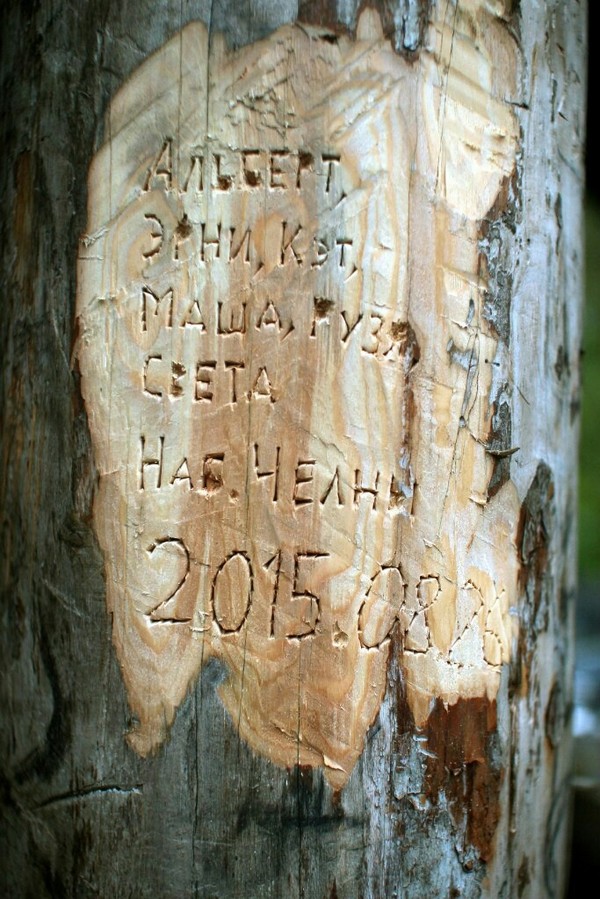 Альберт,
Эрни, Кэт,
Маша, Рузя
Света
Наб. Челны
2015.08.26